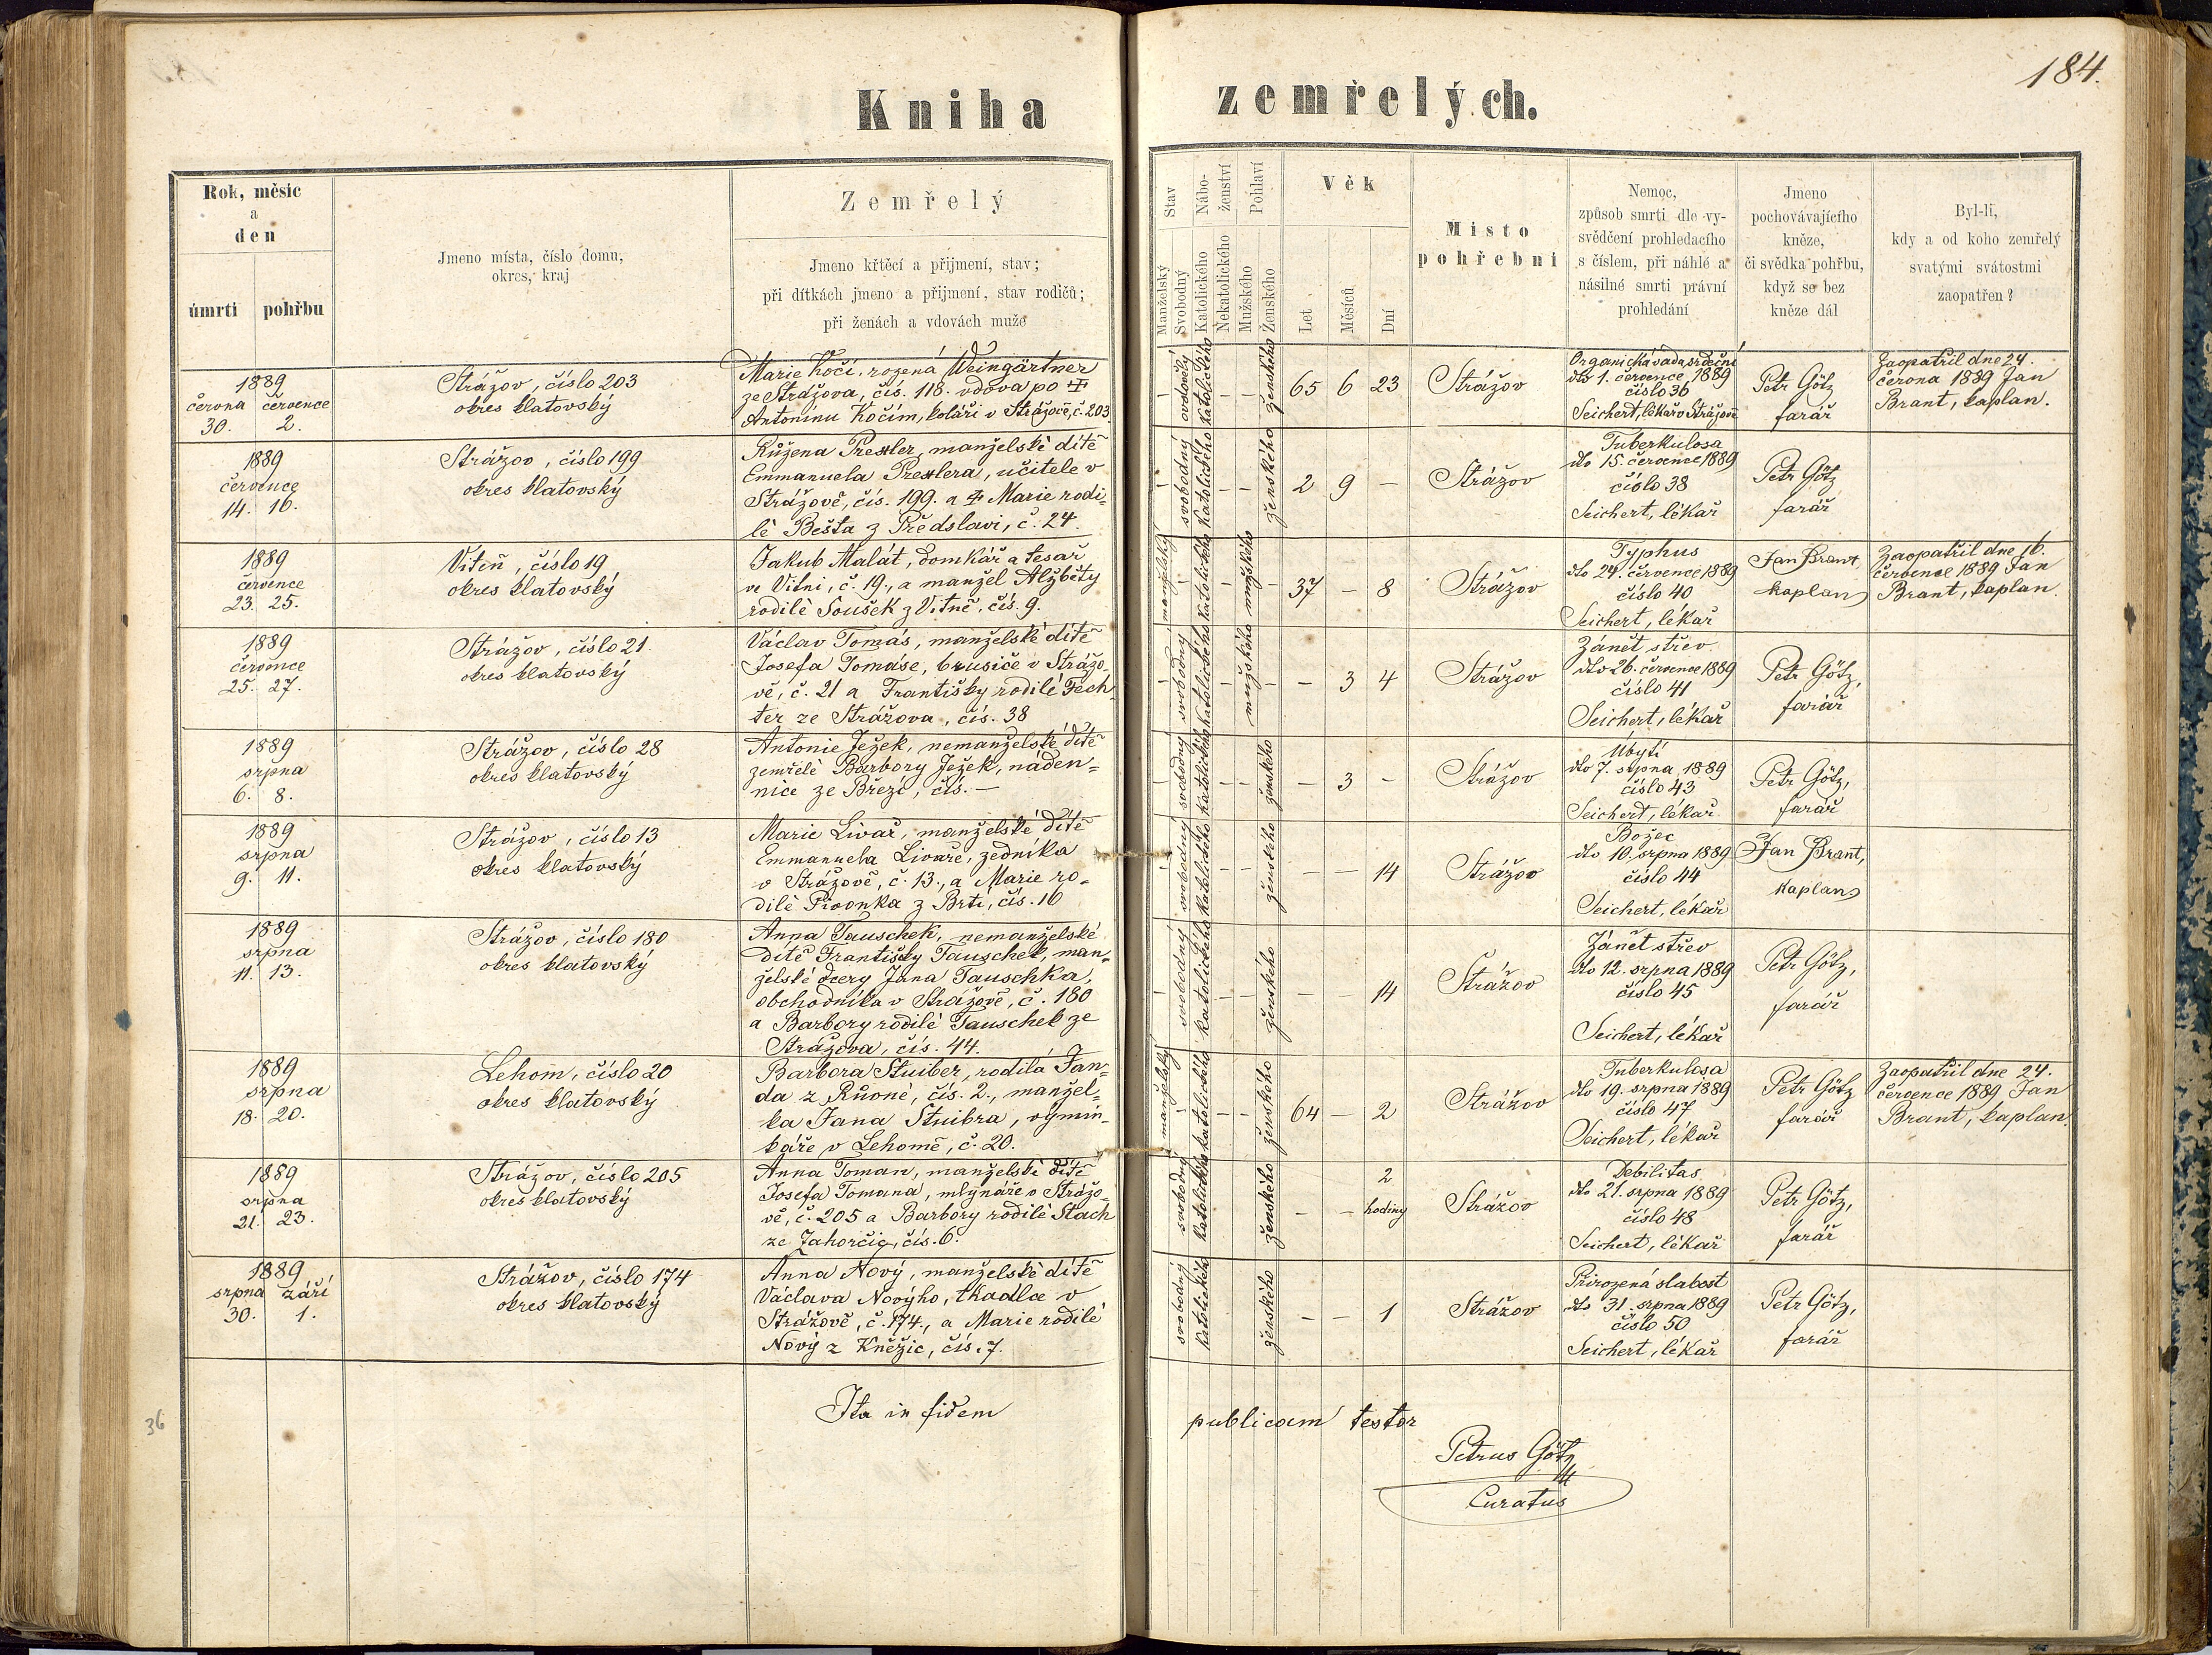 184.
Kniha zemřelých.
Rok, měsíc
a
den
úmrtí pohřbu
Jmeno místa, číslo domu,
okres, kraj
Zemřelý
Jmeno křtěcí a přijmení, stav;
při dítkách jmeno a přijmení, stav rodičů;
při ženách a vdovách muže
Stav
Manželský
Svobodný
Nábo-
ženství
Katolického
Nekatolického
Pohlaví
Mužského
Ženského
Věk
Let
Měsíců
Dní
Místo
pohřební
Nemoc,
způsob smrti dle vy-
svědčení prohledacího
s číslem, při náhlé a
násilné smrti právní
prohledání
Jmeno
pochovávajícího
kněze,
či svědka pohřbu,
když se bez
kněze dál
Byl-li,
kdy a od koho zemřelý
svatými svátostmi
zaopatřen?
1889
června července
30. 2.
Strážov, číslo 203
okres klatovský
Marie Kočí, rozená Weingärtner
ze Strážova, čís. 118. vdova po
Antonínu Kočím, koláři v Strážově, č. 203
ovdovělý
katolického
ženského
65 6 23
Strážov
Organická vada srdeční
dto 1. července 1889
číslo 36
Seichert, lékař v Strážově
Petr Götz
farář
Zaopatřil dne 24.
června 1889 Jan
Brant, kaplan.
1889
července
14. 16.
Strážov, číslo 199
okres klatovský
Růžena Prexler, manželské dítě
Emmanuela Prexlera, učitele v
Strážově, čís. 199. a Marie rodi-
lé Bešta z Předslavi, č. 24.
svobodný
katolického
ženského
2 9 –
Strážov
Tuberkulosa
dto 15. července 1889
číslo 38
Seichert, lékař
Petr Götz
farář
1889
července
23. 25.
Viteň, číslo 19
okres klatovský
Jakub Malát, domkář a tesař
ve Vitni, č. 19., a manžel Alžběty
rodilé Soušek z Vitně, čís. 9.
manželský
katolického
mužského
37 – 8
Strážov
Typhus
dto 24. července 1889
číslo 40
Seichert, lékař
Jan Brant
kaplan
Zaopatřil dne 16.
července 1889 Jan
Brant, kaplan.
1889
července
25. 27.
Strážov, číslo 21.
okres klatovský
Václav Tomás, manželské dítě
Josefa Tomáse, brusiče v Strážo-
vě, č. 21 a Františky rodilé Fech
ter ze Strážova, čís. 38
svobodný
katolického
mužského
– 3 4
Strážov
Zánět střev
dto 26. července 1889
číslo 41
Seichert, lékař
Petr Götz,
farář
1889
srpna
6. 8.
Strážov, číslo 28
okres klatovský
Antonie Ježek, nemanželské dítě
zemřelé Barbory Ježek, náden-
nice ze Březí, čís. —
svobodný
katolického
ženského
– 3 –
Strážov
Úbytí
dto 7. srpna 1889
číslo 43
Seichert, lékař
Petr Götz,
farář
1889
srpna
9. 11.
Strážov, číslo 13
okres klatovský
Marie Livař, manželské dítě
Emmanuela Livaře, zedníka
v Strážově, č. 13., a Marie ro-
dilé Pivonka z Brti, čís. 16
svobodný
katolického
ženského
– – 14
Strážov
Božec
dto 10. srpna 1889
číslo 44
Seichert, lékař
Jan Brant,
kaplan
1889
srpna
11. 13.
Strážov, číslo 180
okres klatovský
Anna Tauschek, nemanželské
dítě Františky Tauschek, man-
želské dcery Jana Tauschka,
obchodníka v Strážově, č. 180
a Barbory rodilé Tauschek ze
Strážova, čís. 44.
svobodný
katolického
ženského
– – 14
Strážov
Zánět střev
dto 12. srpna 1889
číslo 45
Seichert, lékař
Petr Götz,
farář
1889
srpna
18. 20.
Lehom, číslo 20
okres klatovský
Barbora Stuiber, rodilá Jan-
da z Růoné, čís. 2., manžel-
ka Jana Stuibra, výmin-
káře v Lehomě, č. 20.
manželský
katolického
ženského
64 – 2
Strážov
Tuberkulosa
dto 19. srpna 1889
číslo 47
Seichert, lékař
Petr Götz
farář
Zaopatřil dne 24.
července 1889 Jan
Brant, kaplan.
1889
srpna
21. 23.
Strážov, číslo 205
okres klatovský
Anna Toman, manželské dítě
Josefa Tomana, mlynáře v Strážo-
vě, č. 205 a Barbory rodilé Stach
ze Jahorčic, čís. 6.
svobodný
katolického
ženského
– – 2
hodiny
Strážov
Debilitas
dto 21. srpna 1889
číslo 48
Seichert, lékař
Petr Götz,
farář
1889
srpna září
30. 1.
Strážov, číslo 174
okres klatovský
Anna Nový, manželské dítě
Václava Novýho, tkadlce v
Strážově, č. 174., a Marie rodilé
Nový z Kněžic, čís. 7.
svobodný
katolického
ženského
– – 1
Strážov
Přirozená slabost
dto 31. srpna 1889
číslo 50
Seichert, lékař
Petr Götz,
farář
Ita in fidem publicam testor
Petrus Götz
Curatus
36